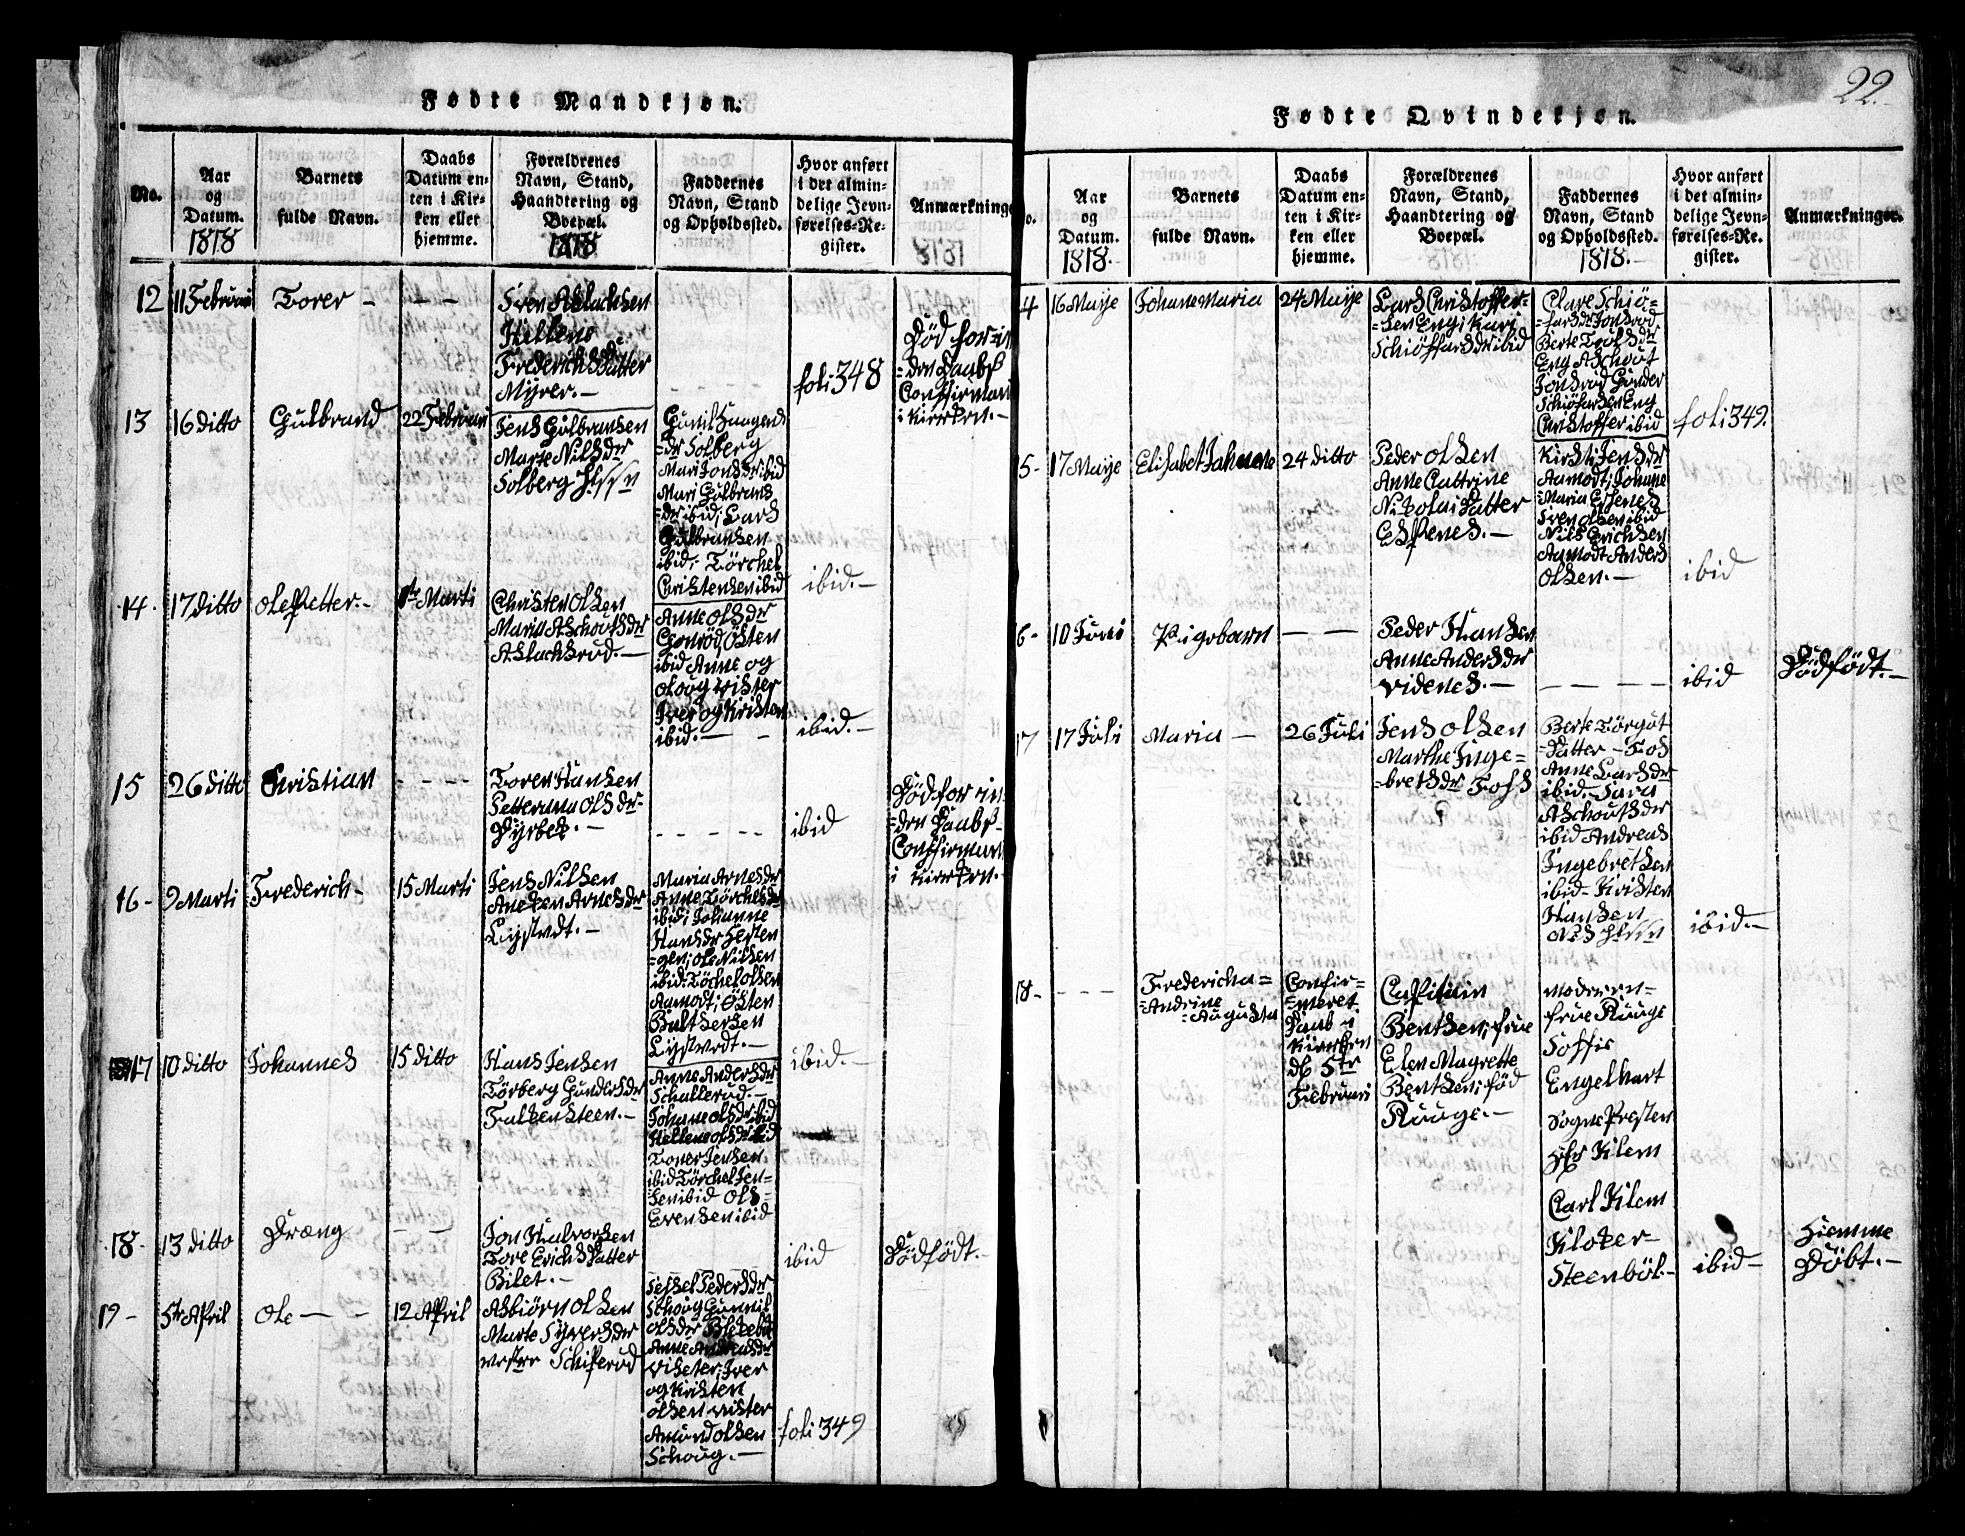 22.
Fødte Mandkjøn.
No.
Aar
og
Datum.
1818
Barnets
fulde Navn.
Daabs
Datum en-
ten i Kir-
ken eller
hjemme.
Forældrenes
Navn, Stand,
Haandtering og
Boepæl.
1818
Faddernes
Navn, Stand
og Opholdssted.
Hvor anført
i det almin-
delige Jevn-
førelses-Re-
gister.
Anmærkninge
12
11 Februari
Torer -
- -
Sven Aslachsen
Hellene
Frederichsdatter
Myrer. -
- - - -
foli 348
Død for in
=den Daabs
Confirmani
i Kirken. -
13
16 ditto
Gulbrand
22 Februari
Jens Gulbransen
Marte Nilsdr
Solberg
=dr Solberg
Mari Jonsdr ibid
Mari Gulbrans
=dr ibid; Lars
Gulbransen
ibid; Törchel
Christensen ibid
ibid. -
14
17 ditto
Ole Petter. -
1te Marti
Christen Olsen
Maria Aschoutsdr
Aslachsrud. -
Anne Olsdr
Östen
ibid Anne og
Iver og Kristen
ibid. - -
ibid. -
15
26 ditto
Kristian
- - - -
Toren Hansen
Petterana Olsdr
- - - -
ibid
Død for in
=den Daabs-
Confirmani
i Kirken. -
16 -
9 Marti
Frederich -
15 Marti
Jens Nilsen
Aneken Arnesdr
Lystvedt. -
Maria Arnesdr
Anne Törchelsdr
ibid; Johanne
Hansdr Hesten
=gen; Ole Nilsen
ibid. Töchel Olsen
Aamodt; Östen
Baltsersen
Lystvedt. -
17
10 ditto
Johannes
15 ditto
Hans Jensen
Törberg Gundersdr
Falkensteen. -
Anne Andersdr
Schallerød. -
Johane Olsdr ibid
Hellene Olsdr ibid
Torer Jensen
ibid Törchel Jen-
=sen ibid Ols=
Evensen ibid
ibid. -
18 -
13 ditto
Dræng
- -
Jon Halvorsen
Tore Erichsdatter
Bilet. -
- - - -
ibid
Dødfødt. -
19 -
5te April
Ole - -
12 April
Asbiörn Olsen
Marte Syversdr
Sissel Pedersdr
Schoug Gunnil
Olsdr
Anne Andersdr
Iver
og Kristen
Olsen
Amund Olsen
Schoug. -
foli 349
Fødte Qvindekjøn.
o.
Aar
og
Datum.
1818.
Barnets
fulde Navn.
Daabs
Datum en-
ten i Kir-
ken eller
hjemme.
Forældrenes
Navn, Stand,
Haandtering og
Boepæl.
Faddernes
Navn, Stand
og Opholdssted.
1818.
Hvor anført
i det almin-
delige Jevn-
førelses-Re-
gister.
Anmærkninger.
4
16 Maye
Johane Maria
24 Maye
Lars Christoffer-
=sen Eng; Kari
ibid
Clare Schiö-
Berte Trolsdr
Eng Aschout
Jonsrød Gunder
Eng
Christoffer ibid
foli 349.
5 -
17 Maye
Elisabet Johanne
24 ditto
Peder Olsen
Anne Cattrine
Nikolai datter
Espenes. -
Kirsti Jensdr
Aamodt; Johane
=Maria Espenes
Sven Olsen ibid
Nils Erichsen
Aamodt Anders
Olsen. -
ibid
6 -
10 Juni
Pigebarn
- -
Peder Hansen
Anne Andersdr
Videnes. -
- - -
ibid
Dødfødt. -
17
17 Juli
Maria -
26 Juli
Jens Olsen
Marthe Inge-
=bretsdr Foss
Berte Törgut
=datter - Fos
Anne Larsdr
ibid. - Sara
Aschoutsdr
ibid Andreas
Ingebretsen
ibid - Kristen
Hansen
ibid. -
18 -
- - -
Fredericha=
=Andrine
=Augusta
Confir=
=meret
Daab i
Kirken
d. 5te
Februari
Captain
Bentsen; frue
Elen Magrette
Bentsen; fød
Ruuge. -
moderen=
frue Ruuge
Soffie
Engelhart
Sogne Presten
Hr Klem
Carl Klem
Kloker
Steenböl. -
ibid -
Hiemme
Döbt. -